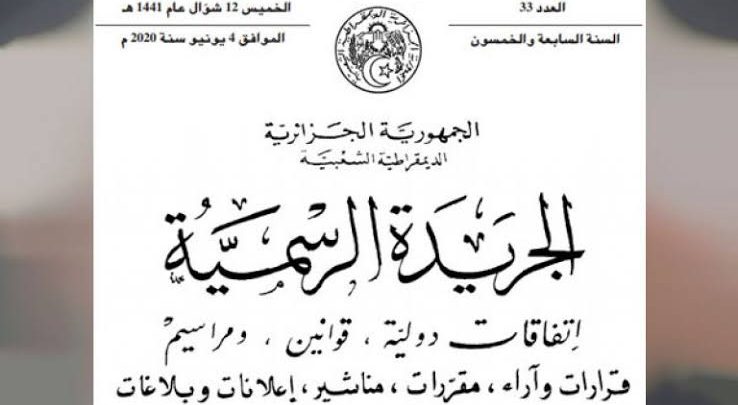 العدد 33
الخميس 12 شوّال عام 1441 هـ
السنة السابعة والخمسون
الموافق 4 يونيو سنة 2020 م
الجمهورية الجزائرية
الديمقراطية الشعبية
الجريدة الرسمية
إتفاقات دولية ، قوانين ، ومراسيم
قرارات وآراء ، مقررات ، مناشير ، إعلانات وبلاغات